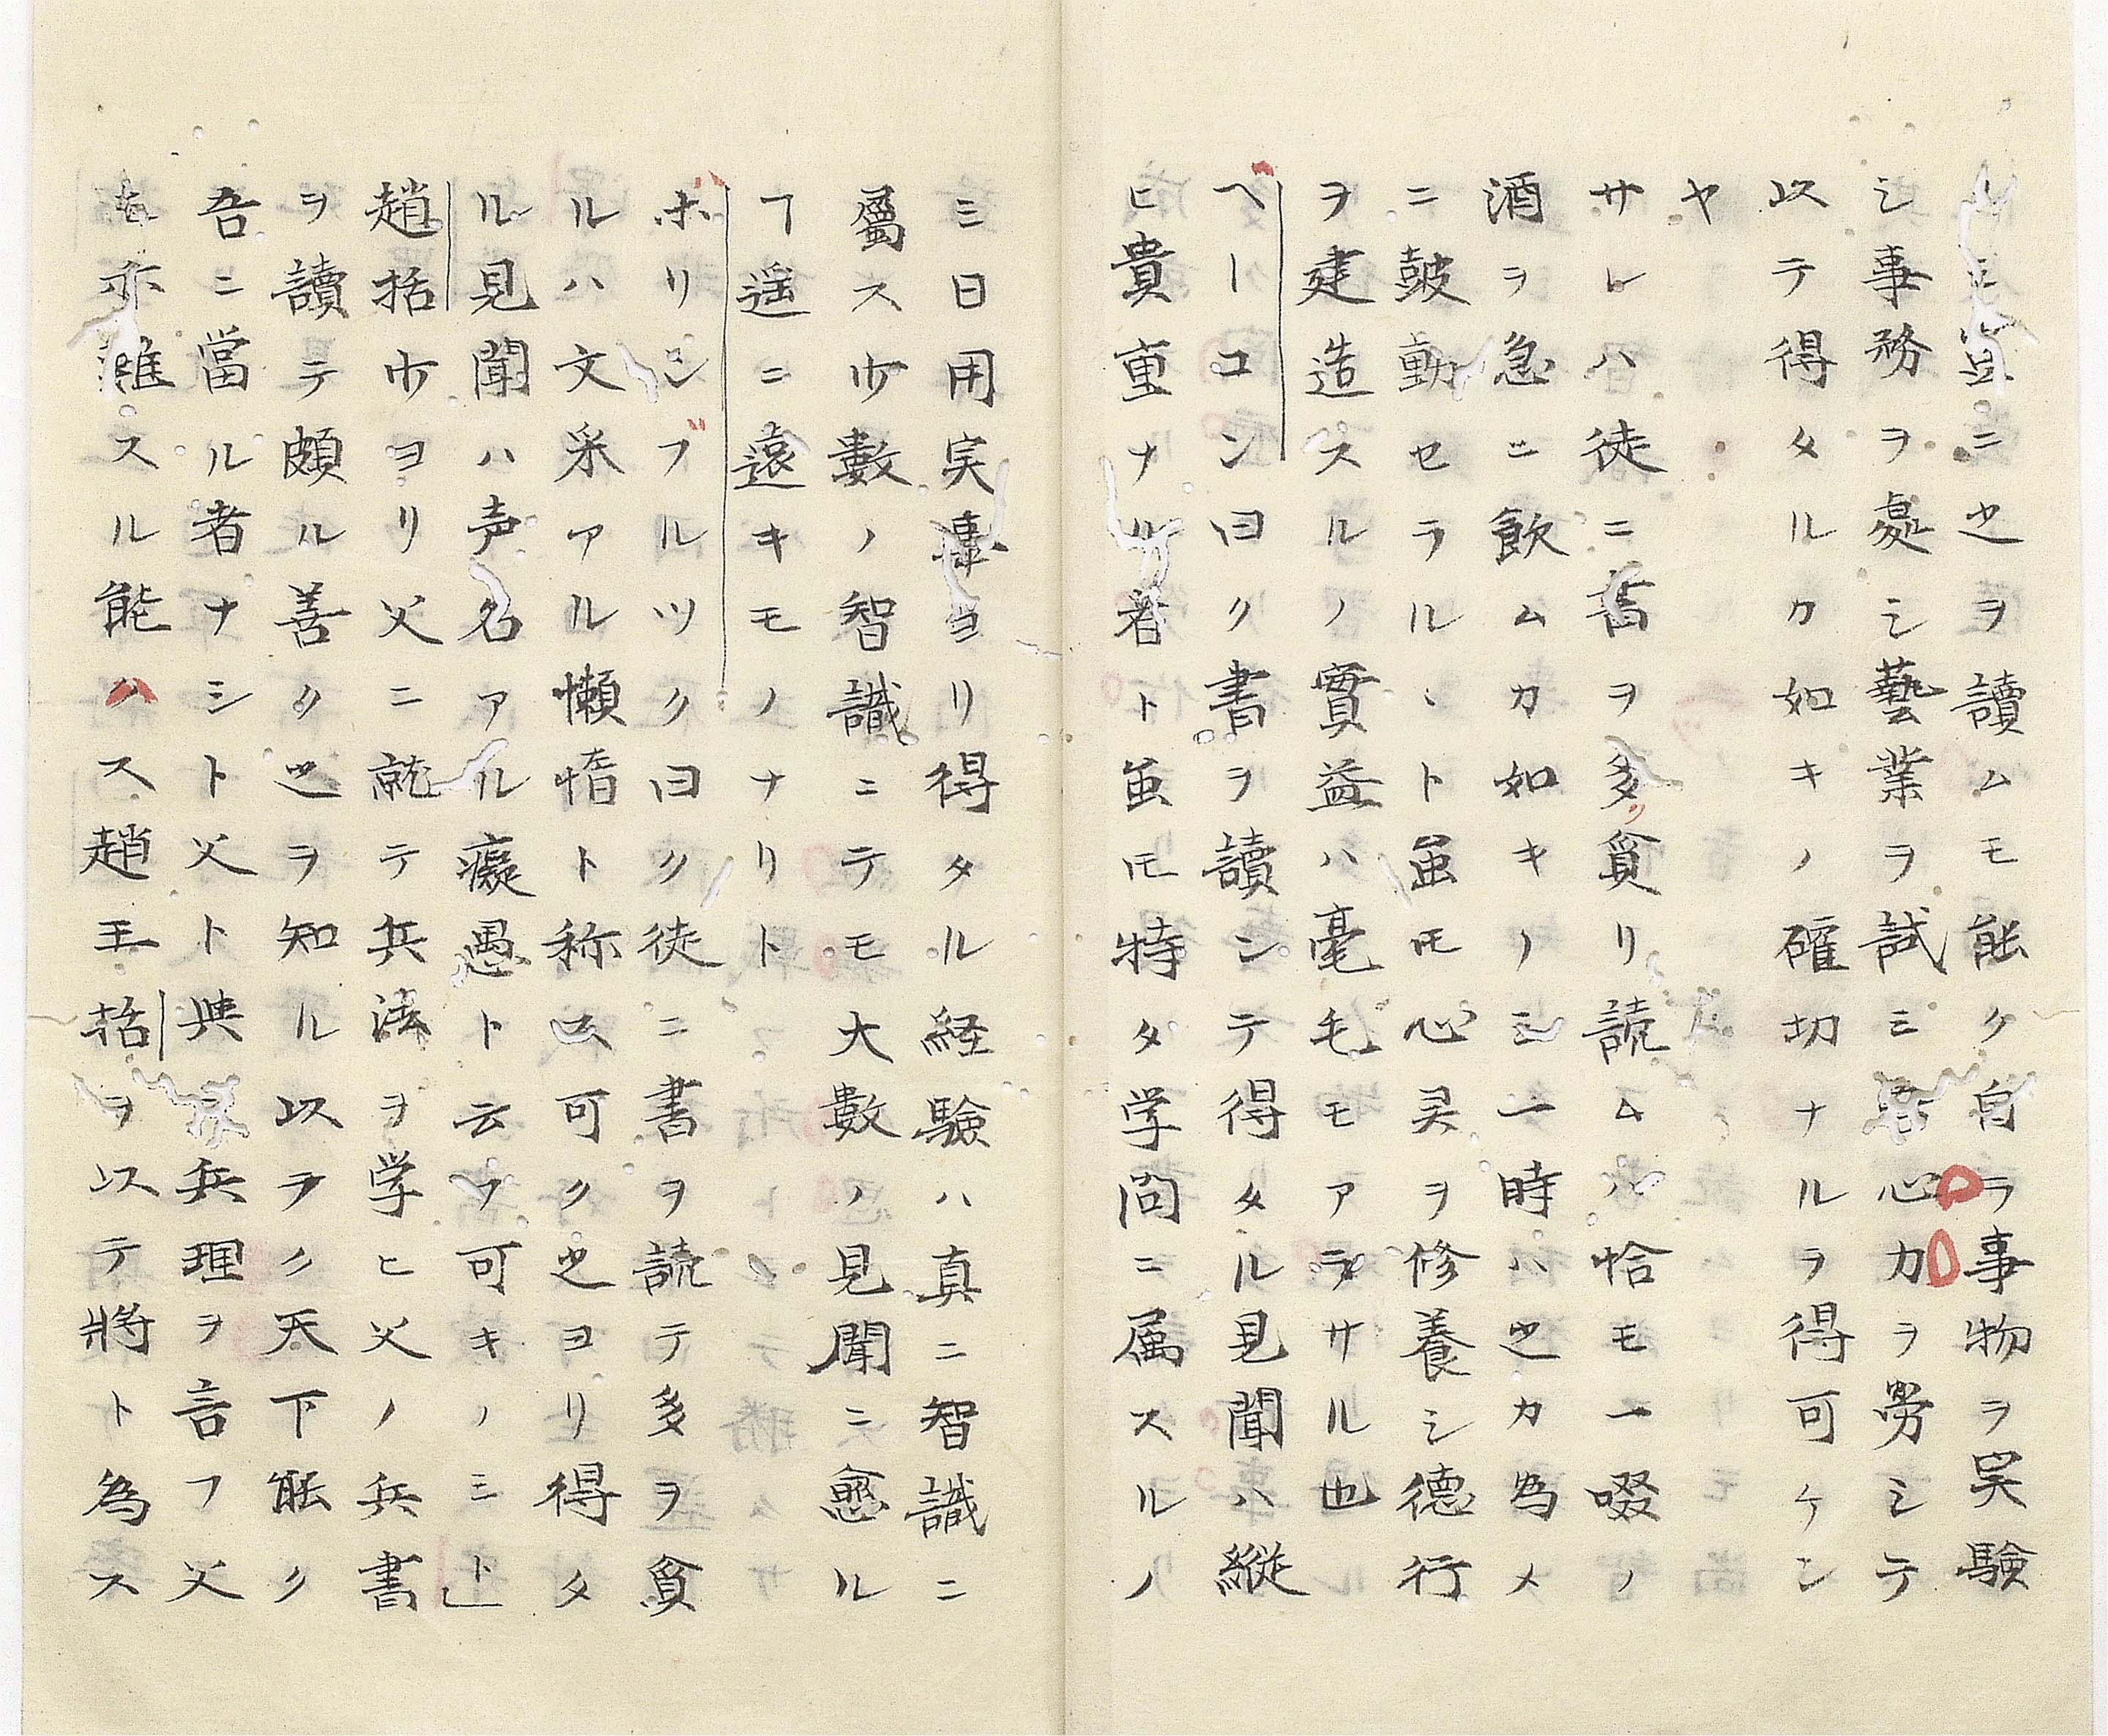 ニ之ヲ讀ムモ能ク自ラ事物ヲ実験
シ事務ヲ處シ藝業ヲ試ミ吾心力ヲ労シテ
以テ得タルカ如キノ確切ナルヲ得可ケン
ヤ
サレハ徒ニ書ヲ多ク貪リ読ムハ恰モ一啜ノ
酒ヲ急ニ飲ムカ如キノミ一時ハ之カ為メ
ニ皷動セラルヽト虽𪜈心灵ヲ修養シ德行
ヲ建造スルノ實益ハ毫毛モアラサル也
ベーコン曰ク書ヲ讀ンテ得タル見聞ハ縦
ヒ貴重ナル者ト虽𪜈特タ学問ニ属スルノ
ミ日用実事ヨリ得タル経驗ハ真ニ智識ニ
屬ス少數ノ智識ニテモ大數ノ見聞ニ愈ル
ヿ遥ニ遠キモノナリト
ボリンブルツク曰ク徒ニ書ヲ読テ多ヲ貪
ルハ文采アル懶惰ト称ス可ク之ヨリ得タ
ル見聞ハ声名アル癡愚ト云フ可キノミト」
趙括少ヨリ父ニ就テ兵法ヲ学ヒ父ノ兵書
ヲ讀テ頗ル善ク之ヲ知ル以ヲク天下能ク
吾ニ當ル者ナシト父ト與ニ兵理ヲ言フ父
モ亦難スル能ハス趙王括ヲ以テ將ト為ス